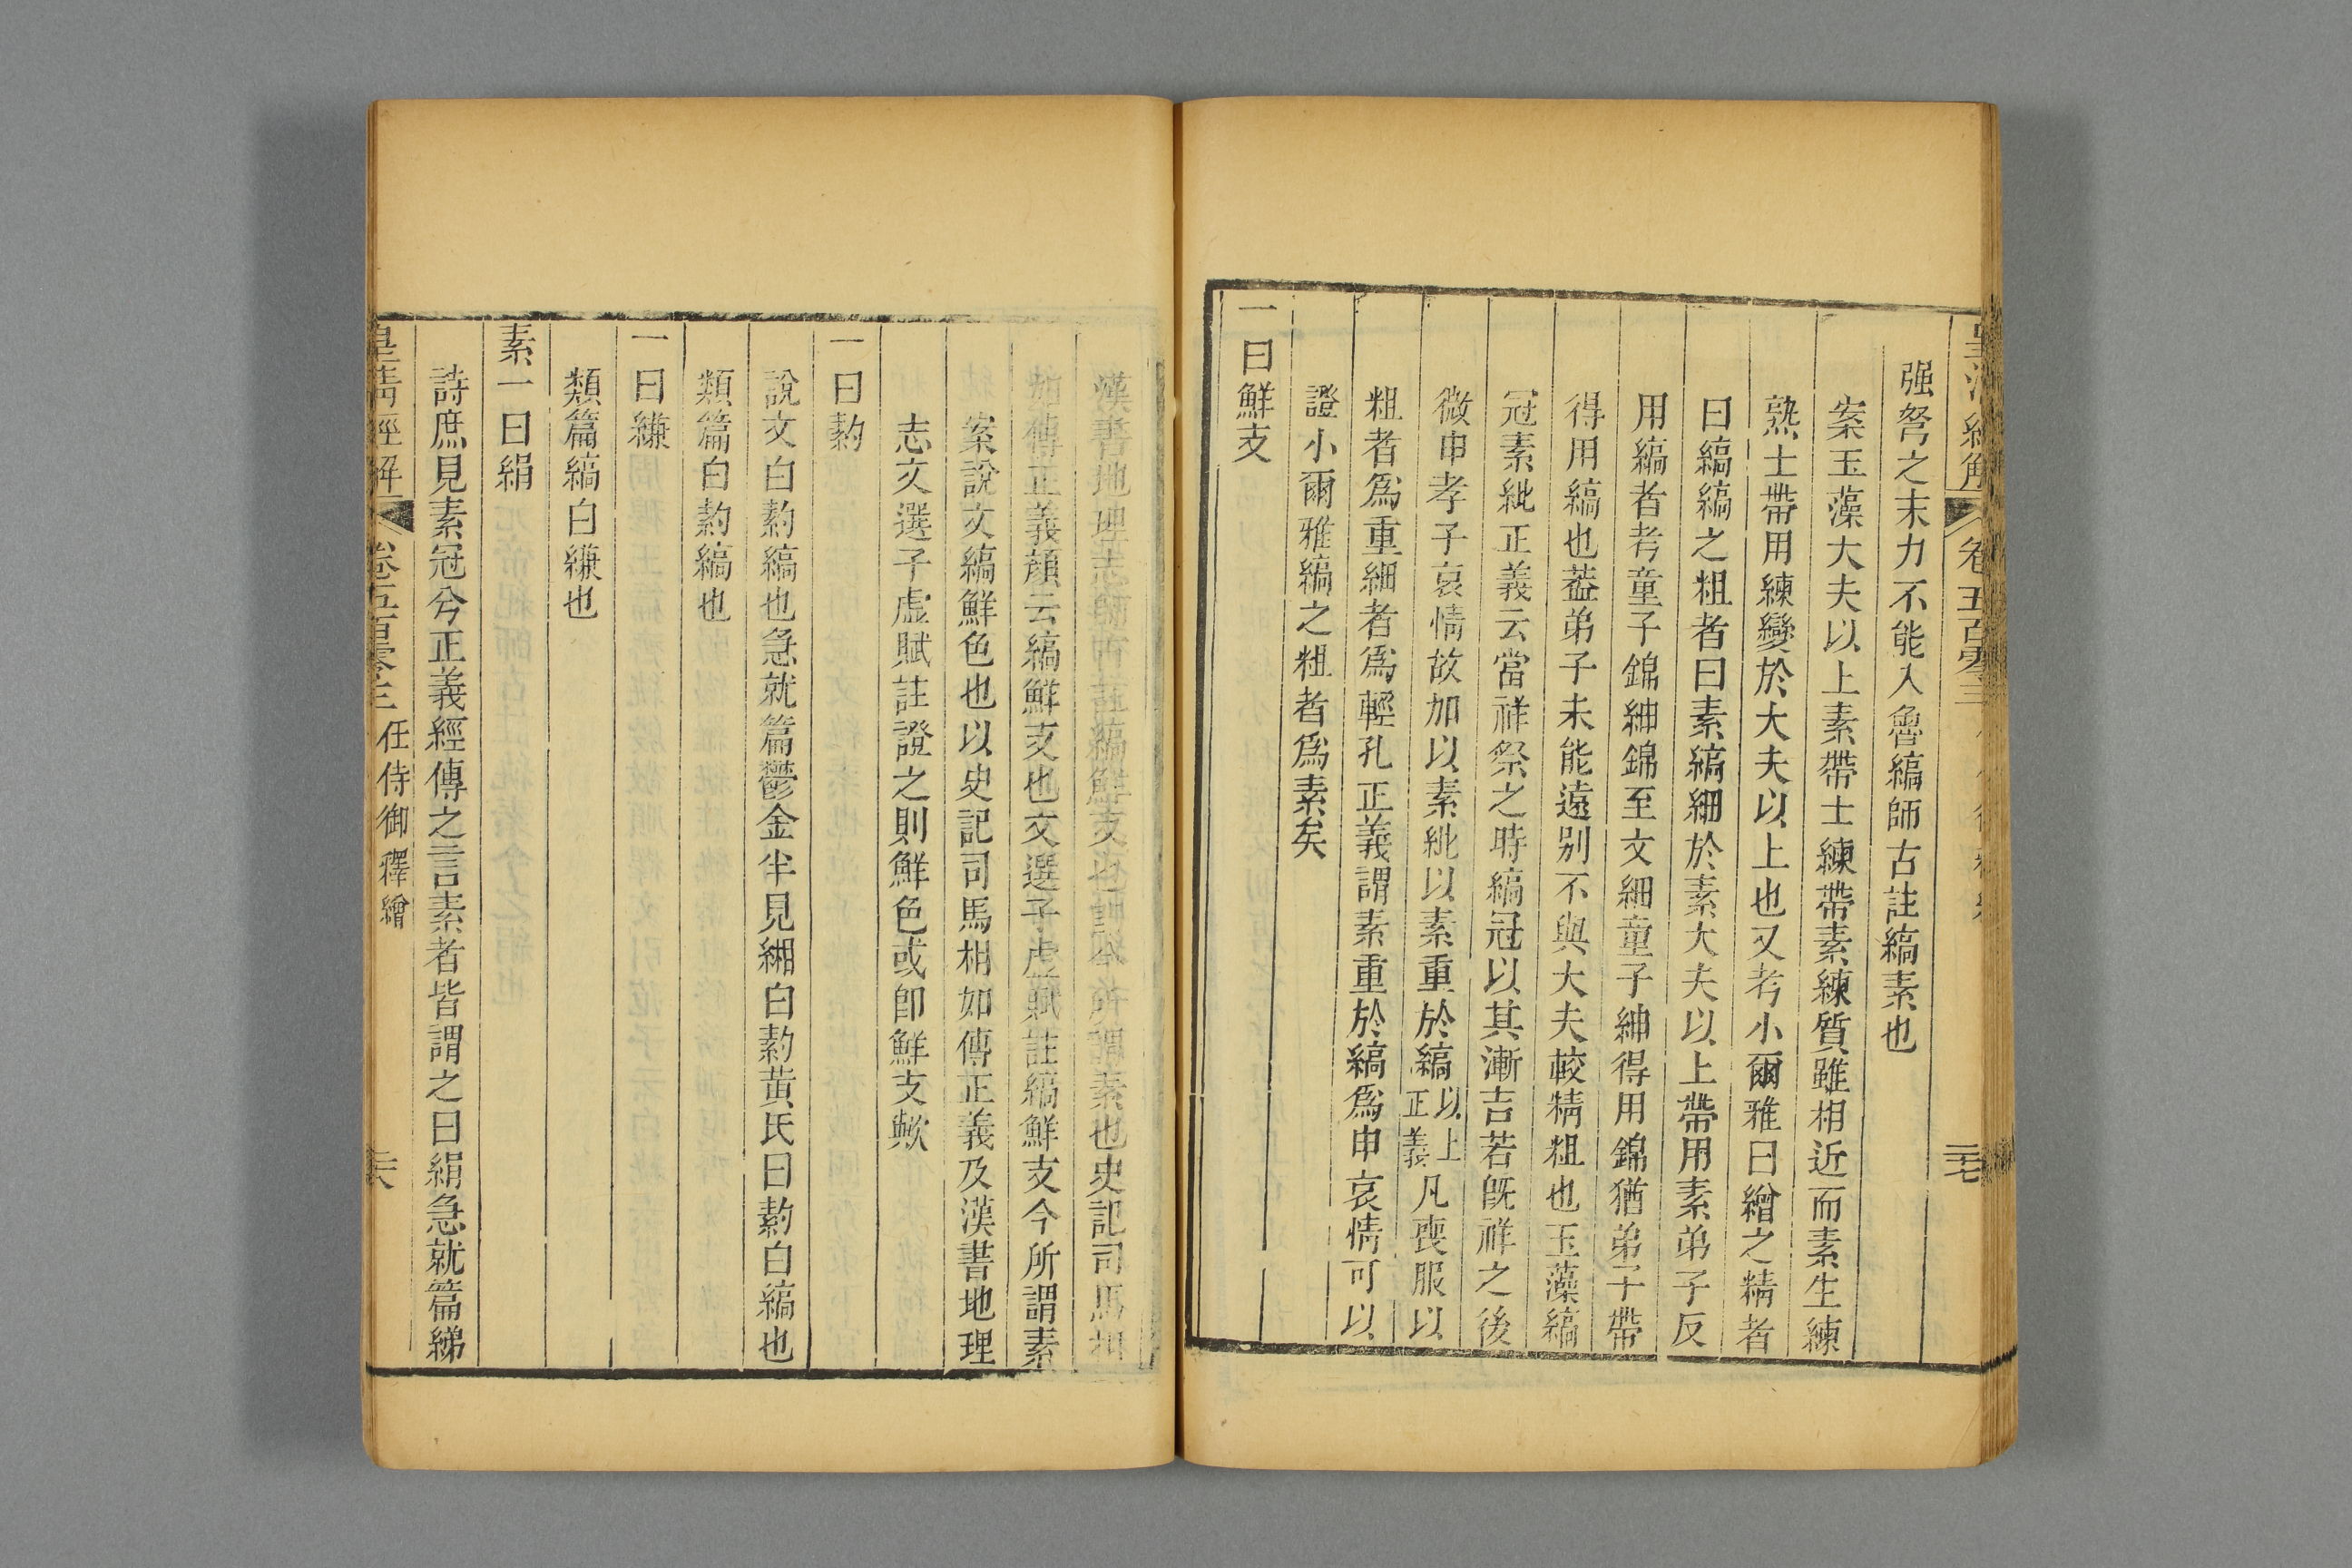 皇清經解
卷五百零三
二七
强弩之末力不能入魯縞師古註縞素也
案玉藻大夫以上素帶士練帶素練質雖相近而素生練
熟士帶用練變於大夫以上也又考小爾雅曰繒之精者
曰縞縞之粗者曰素縞細於素大夫以上帶用素弟子反
用縞者考童子錦紳錦至文細童子紳得用錦猶弟子帶
得用縞也葢弟子未能遠别不與大夫較精粗也玉藻縞
冠素紕正義云當祥祭之時縞冠以其漸吉若旣祥之後
微申孝子哀情故加以素紕以素重於縞以上正義凡喪服以
粗者爲重細者爲輕孔正義謂素重於縞爲申哀情可以
證小爾雅縞之粗者爲素矣
一曰鮮支
漢書地理志師古註縞鮮支也卽今所謂素也史記司馬相
如傳正義顔云縞鮮支也文選子虛賦註縞鮮支今所謂素
案說文縞鮮色也以史記司馬相如傳正義及漢書地理
志文選子虛賦註證之則鮮色或卽鮮支歟
一曰䋤
說文白䋤縞也急就篇鬱金半見緗白䋤黃氏曰䋤白縞也
類篇白䋤縞也
一曰縑
類篇縞白縑也
素一曰絹
詩庶見素冠兮正義經傳之言素者皆謂之曰絹急就篇綈
皇清經解
卷五百零三
任侍御釋繒
二六